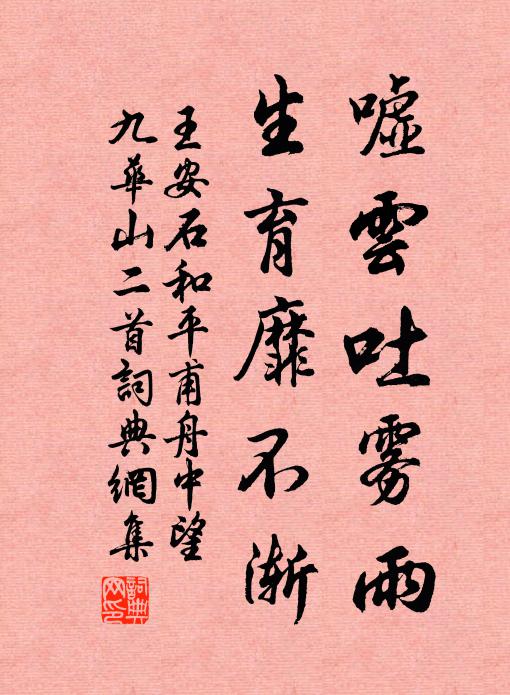 噓雲吐雾雨
生育靡不漸
王安石和平甫舟中望
九華山二首詞典網集
詞典網印